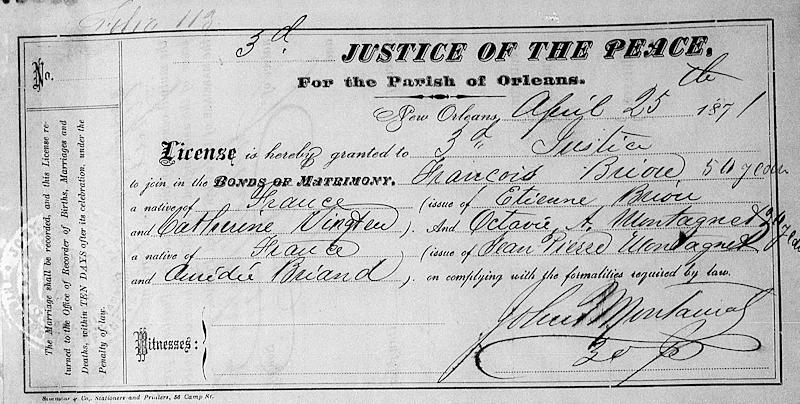 Folio 113
3d. JUSTICE OF THE PEACE,
No.
For the Parish of Orleans.
New Orleans, April 25th 1871
License is hereby granted to 3d Justice
to join in the BONDS OF MATRIMONY, Francois Brioü 54 years
a native of France (issue of Etienne Brioü
and Catherine Vingtreu). And Octavie A. Montagnet 34 years
a native of France (issue of Jean Pierre Montagnet
and Amédée Briand). on complying with the formalities required by law.
Witnesses:
John
3d J P
The Marriage shall be recorded, and this License re-
turned to the Office of Recorder of Births, Marriages and
Deaths, within TEN DAYS after its celebration, under the
Penalty of law.
& Co., Stationers and Printers, 56 Camp St.